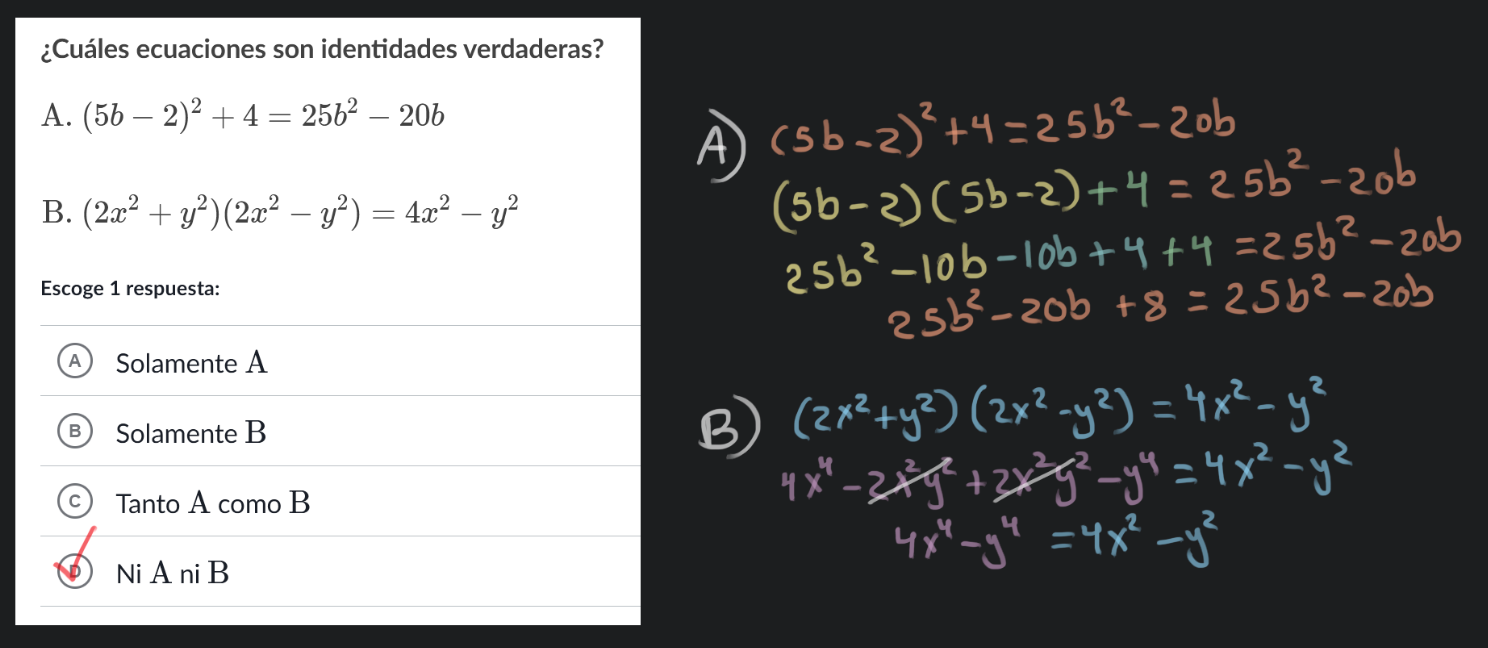 ¿Cuáles ecuaciones son identidades verdaderas?
A. (5b − 2)² + 4 = 25b² − 20b
B. (2x² + y²)(2x² − y²) = 4x² − y²
Escoge 1 respuesta:
A Solamente A
B Solamente B
C Tanto A como B
D Ni A ni B
A) (5b-2)²+4=25b²-20b
(5b-2)(5b-2)+4 = 25b²-20b
25b²-10b-10b+4+4 =25b²-20b
25b²-20b +8 = 25b²-20b
B) (2x²+y²)(2x²-y²) = 4x²-y²
4x⁴-2x²y²+2x²y²-y⁴ =4x²-y²
4x⁴-y⁴ =4x²-y²